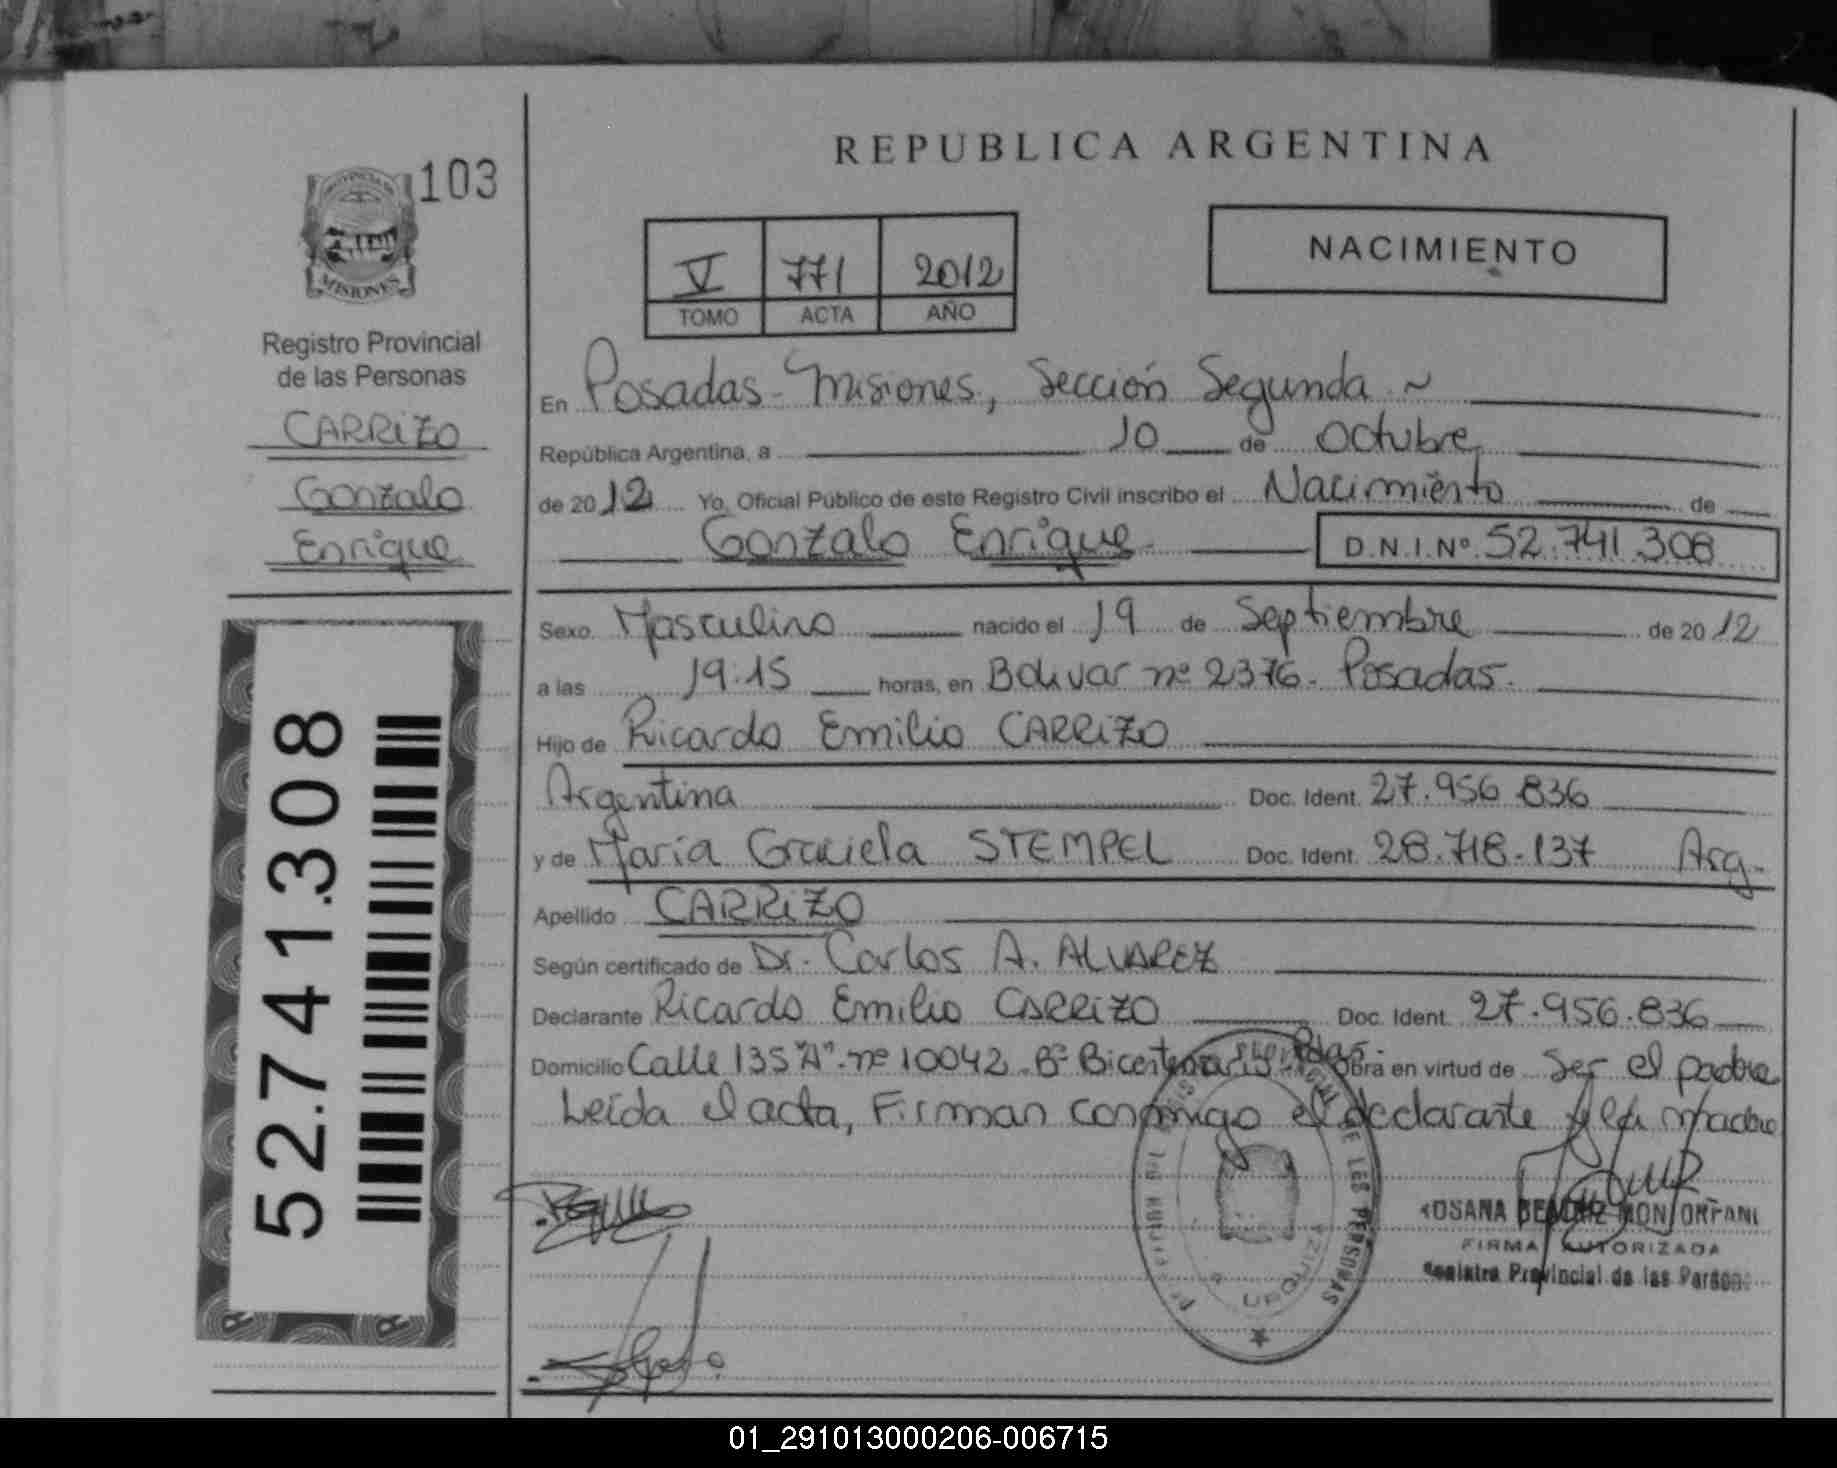 REPUBLICA ARGENTINA
103
PROVINCIA DE
MISIONES
Registro Provincial
de las Personas
CARRIZO
Gonzalo
Enrique
52.741.308
V 771 2012
TOMO ACTA AÑO
NACIMIENTO
En Posadas - Misiones, Sección Segunda ~
República Argentina, a 10 de Octubre
de 2012 Yo, Oficial Público de este Registro Civil inscribo el Nacimiento de
Gonzalo Enrique D.N.I.Nº 52.741.308
Sexo Masculino nacido el 19 de Septiembre de 2012
a las 19:15 horas, en Bolivar nº 2376. Posadas.
Hijo de Ricardo Emilio CARRIZO
Argentina Doc. Ident. 27.956.836
y de Maria Graciela STEMPEL Doc. Ident. 28.718.137 Arg.
Apellido CARRIZO
Según certificado de Dr. Carlos A. ALVAREZ
Declarante Ricardo Emilio CARRIZO Doc. Ident. 27.956.836
Domicilio Calle 135 "A" nº 10042 Bº Bicentenario Pdas. Obra en virtud de Ser el padre
Leída el acta, Firman conmigo el declarante y la madre
DE LAS PERSONAS
ROSANA BEATRIZ MONFORFANI
FIRMA AUTORIZADA
Registro Provincial de las Personas
01_291013000206-006715